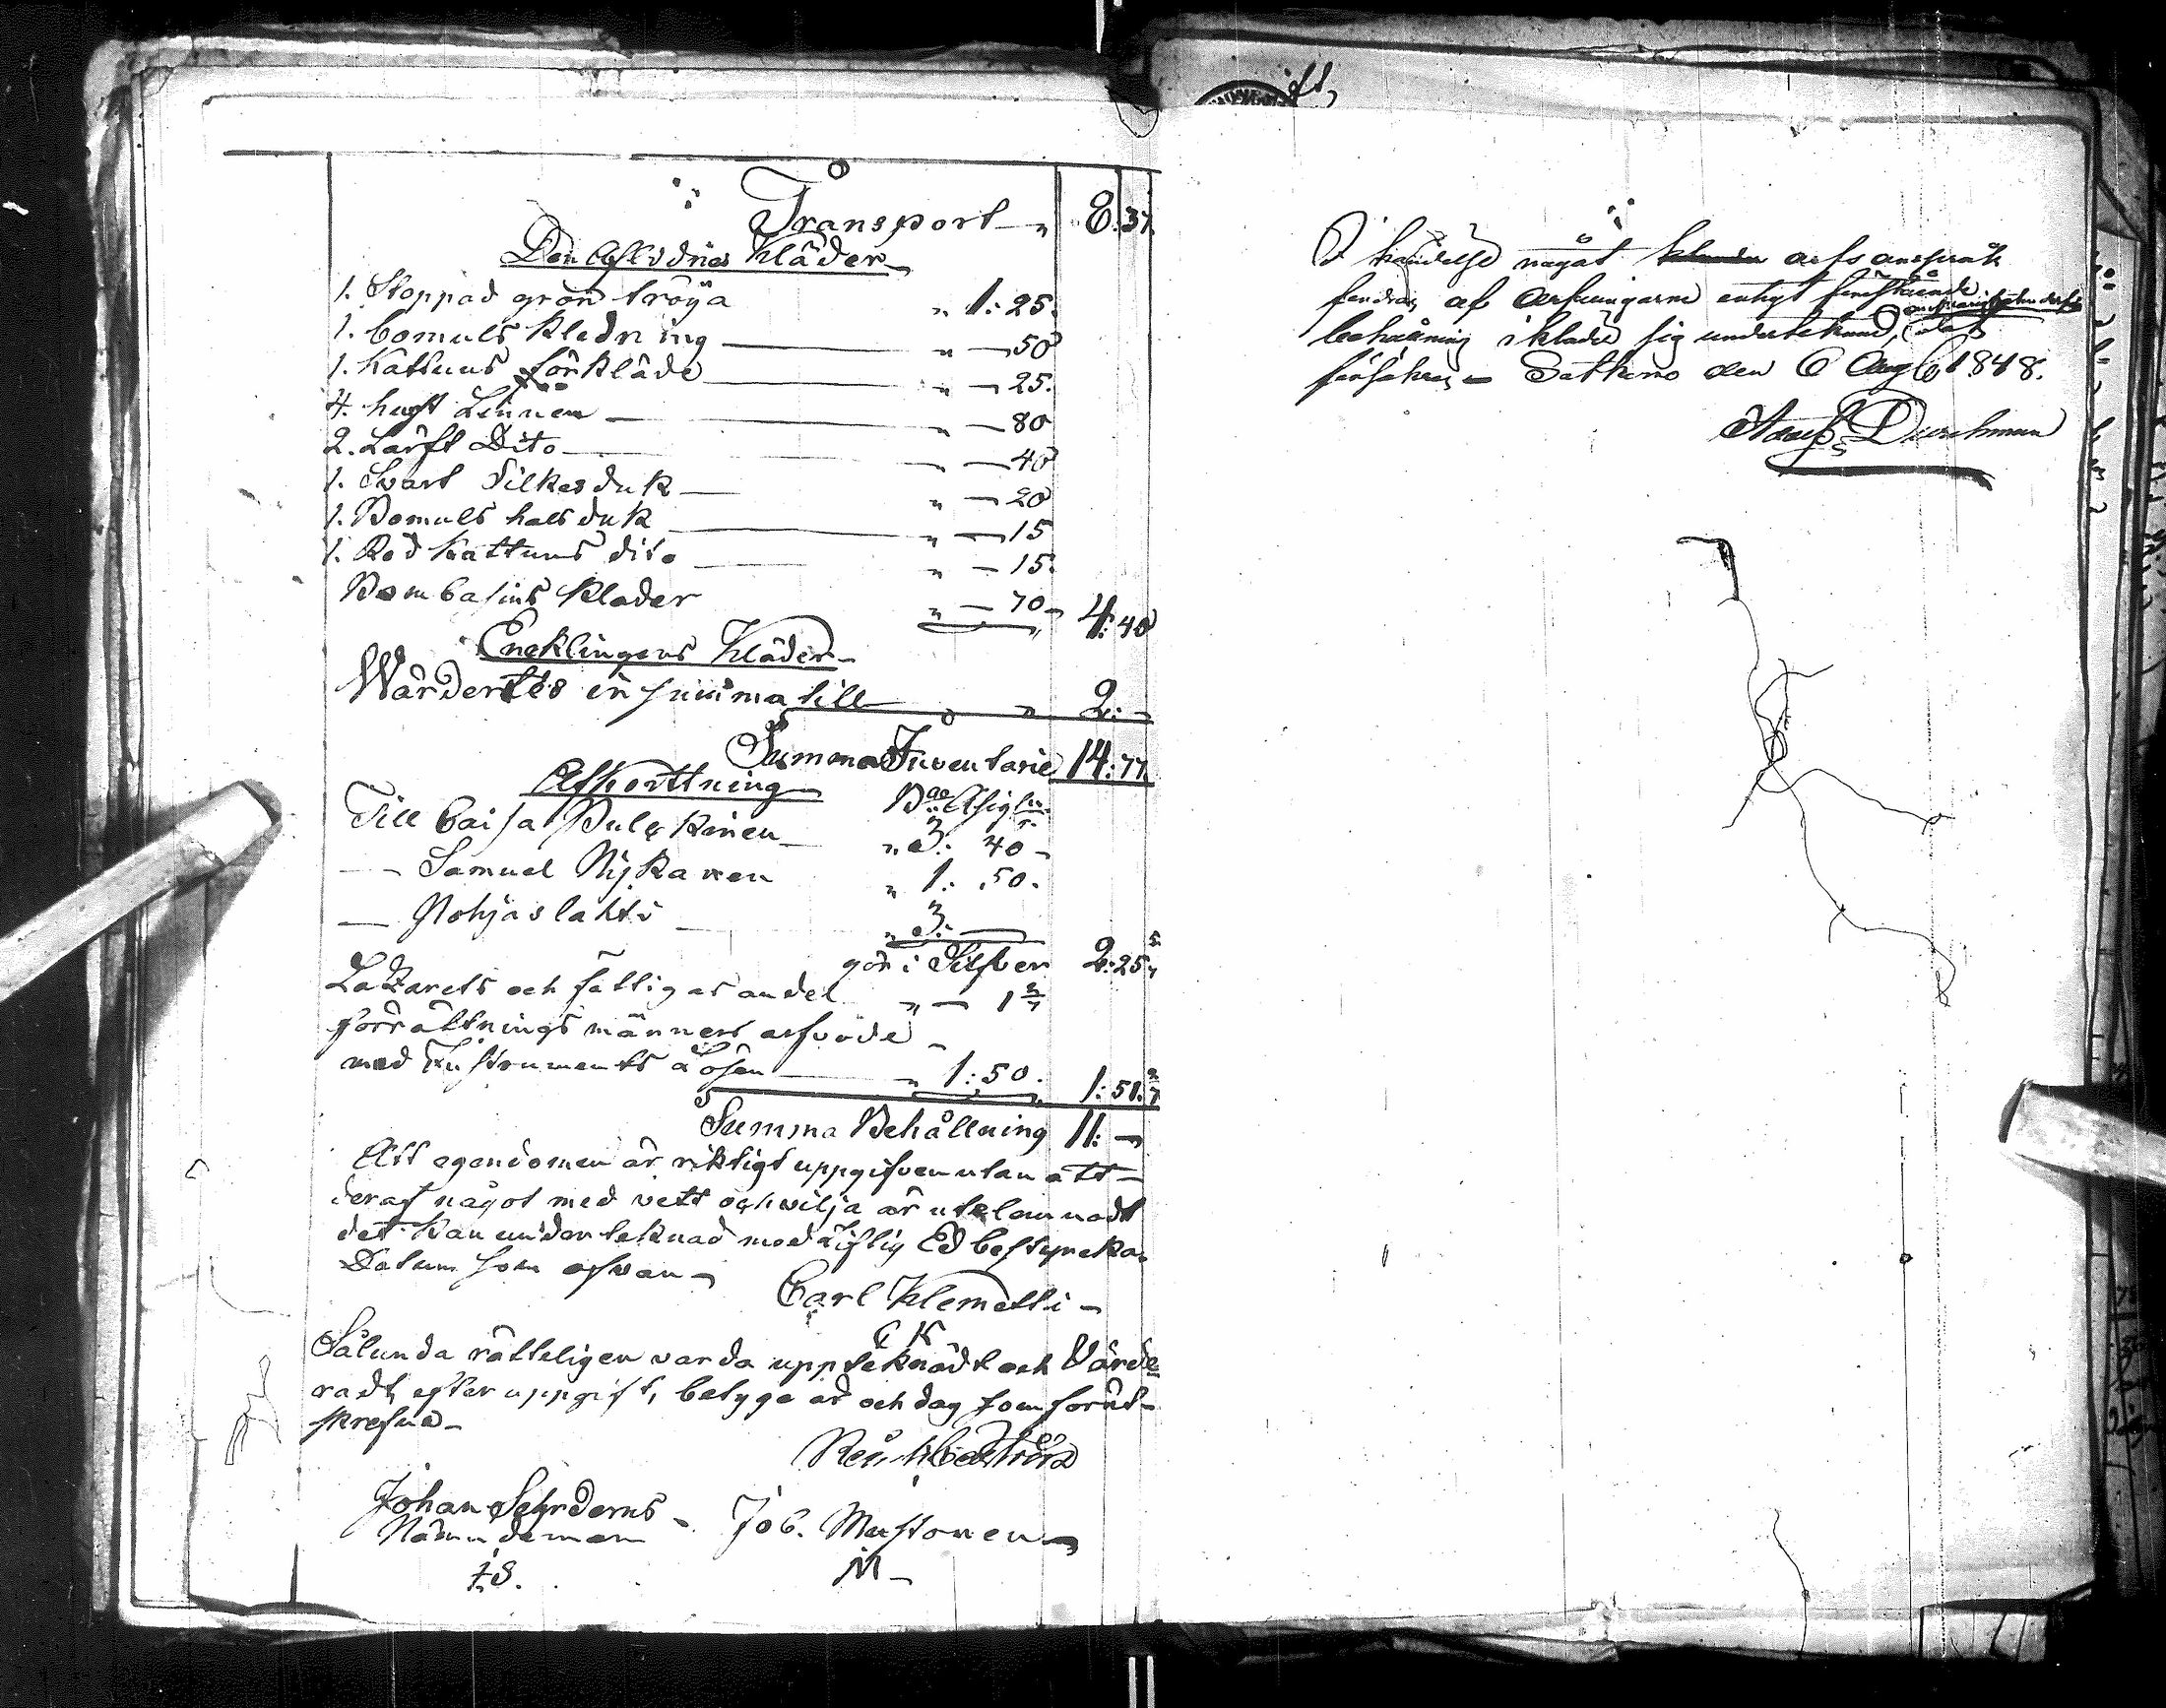 Transport 8:37.
Den Aflidnes Kläder
1. Stoppad grön tröya " 1:25.
1. Bomuls Kledning " — 50
1. Kattuns förkläde " — 25.
4. Linnen " — 80
2. Lärft Dito " — 40
1. Svart Silkesduk " — 20
1. Bomuls halsduk " — 15
1. Röd Kattuns dito " — 15.
Bombasins Klader " — 70 4:40
Encklingens Kläder
Wärdertes in summa till " 2:—
Summa Inventarie 14:77.
Afkorttning Bco Assign
Till Caisa Pulckinen " 3: 40
— Samuel Nykänen " 1: 50.
— Nohjaslahti " 3:—
gör i Silfver 2:25 5/7
Lazarets och fattigas andel " — 1 2/7
förrättnings männers arfvode
med Instruments Lösen " 1:50. 1:51. 2/7
Summa Behållning 11:—
Att egendomen är riktigt uppgifven utan att
deraf något med vett och vilja är utelemnadt
det kan undertecknad med Liflig Ed bestyrcka.
Datum som ofvan
Carl Klemetti
C K
Sålunda rätteligen varda upptecknadt och Värde
radt, efter uppgift, betyga år och dag som förut
skrefne
Johan Sehrderns Job. Mustonen
Nämndeman
J.S. M
I händelse något arfs anspråk
af Arfvingarne enligt förestående
behållning iklader sig undertecknad,
Sotkamo den 6 Aug 1848.
Adolf